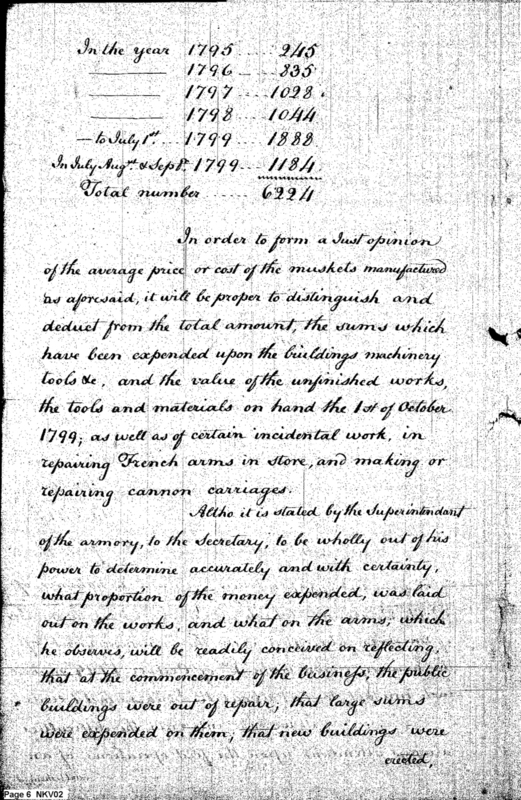 In the year 1795 .... 245
1796 ... 835
1797 .... 1028
1798 .... 1044
— to July 1st .... 1799 .... 1888
In July Augt. & Sepr. 1799 .... 1184
Total number ...... 6224
In order to form a Just opinion
of the average price or cost of the muskets manufactured
as aforesaid, it will be proper to distinguish and
deduct from the total amount, the sums which
have been expended upon the buildings machinery
tools &c, and the value of the unfinished works,
the tools and materials on hand the 1st of October
1799; as well as of certain incidental work, in
repairing French arms in store, and making or
repairing cannon carriages.
Altho it is stated by the Superintendant
of the armory, to the Secretary, to be wholly out of his
power to determine accurately and with certainty,
what proportion of the money expended, was laid
out on the works, and what on the arms; which
he observes, will be readily conceived on reflecting,
that at the commencement of the business; the public
buildings were out of repair; that large sums
were expended on them; that new buildings were
erected,
Page 6 NKV02